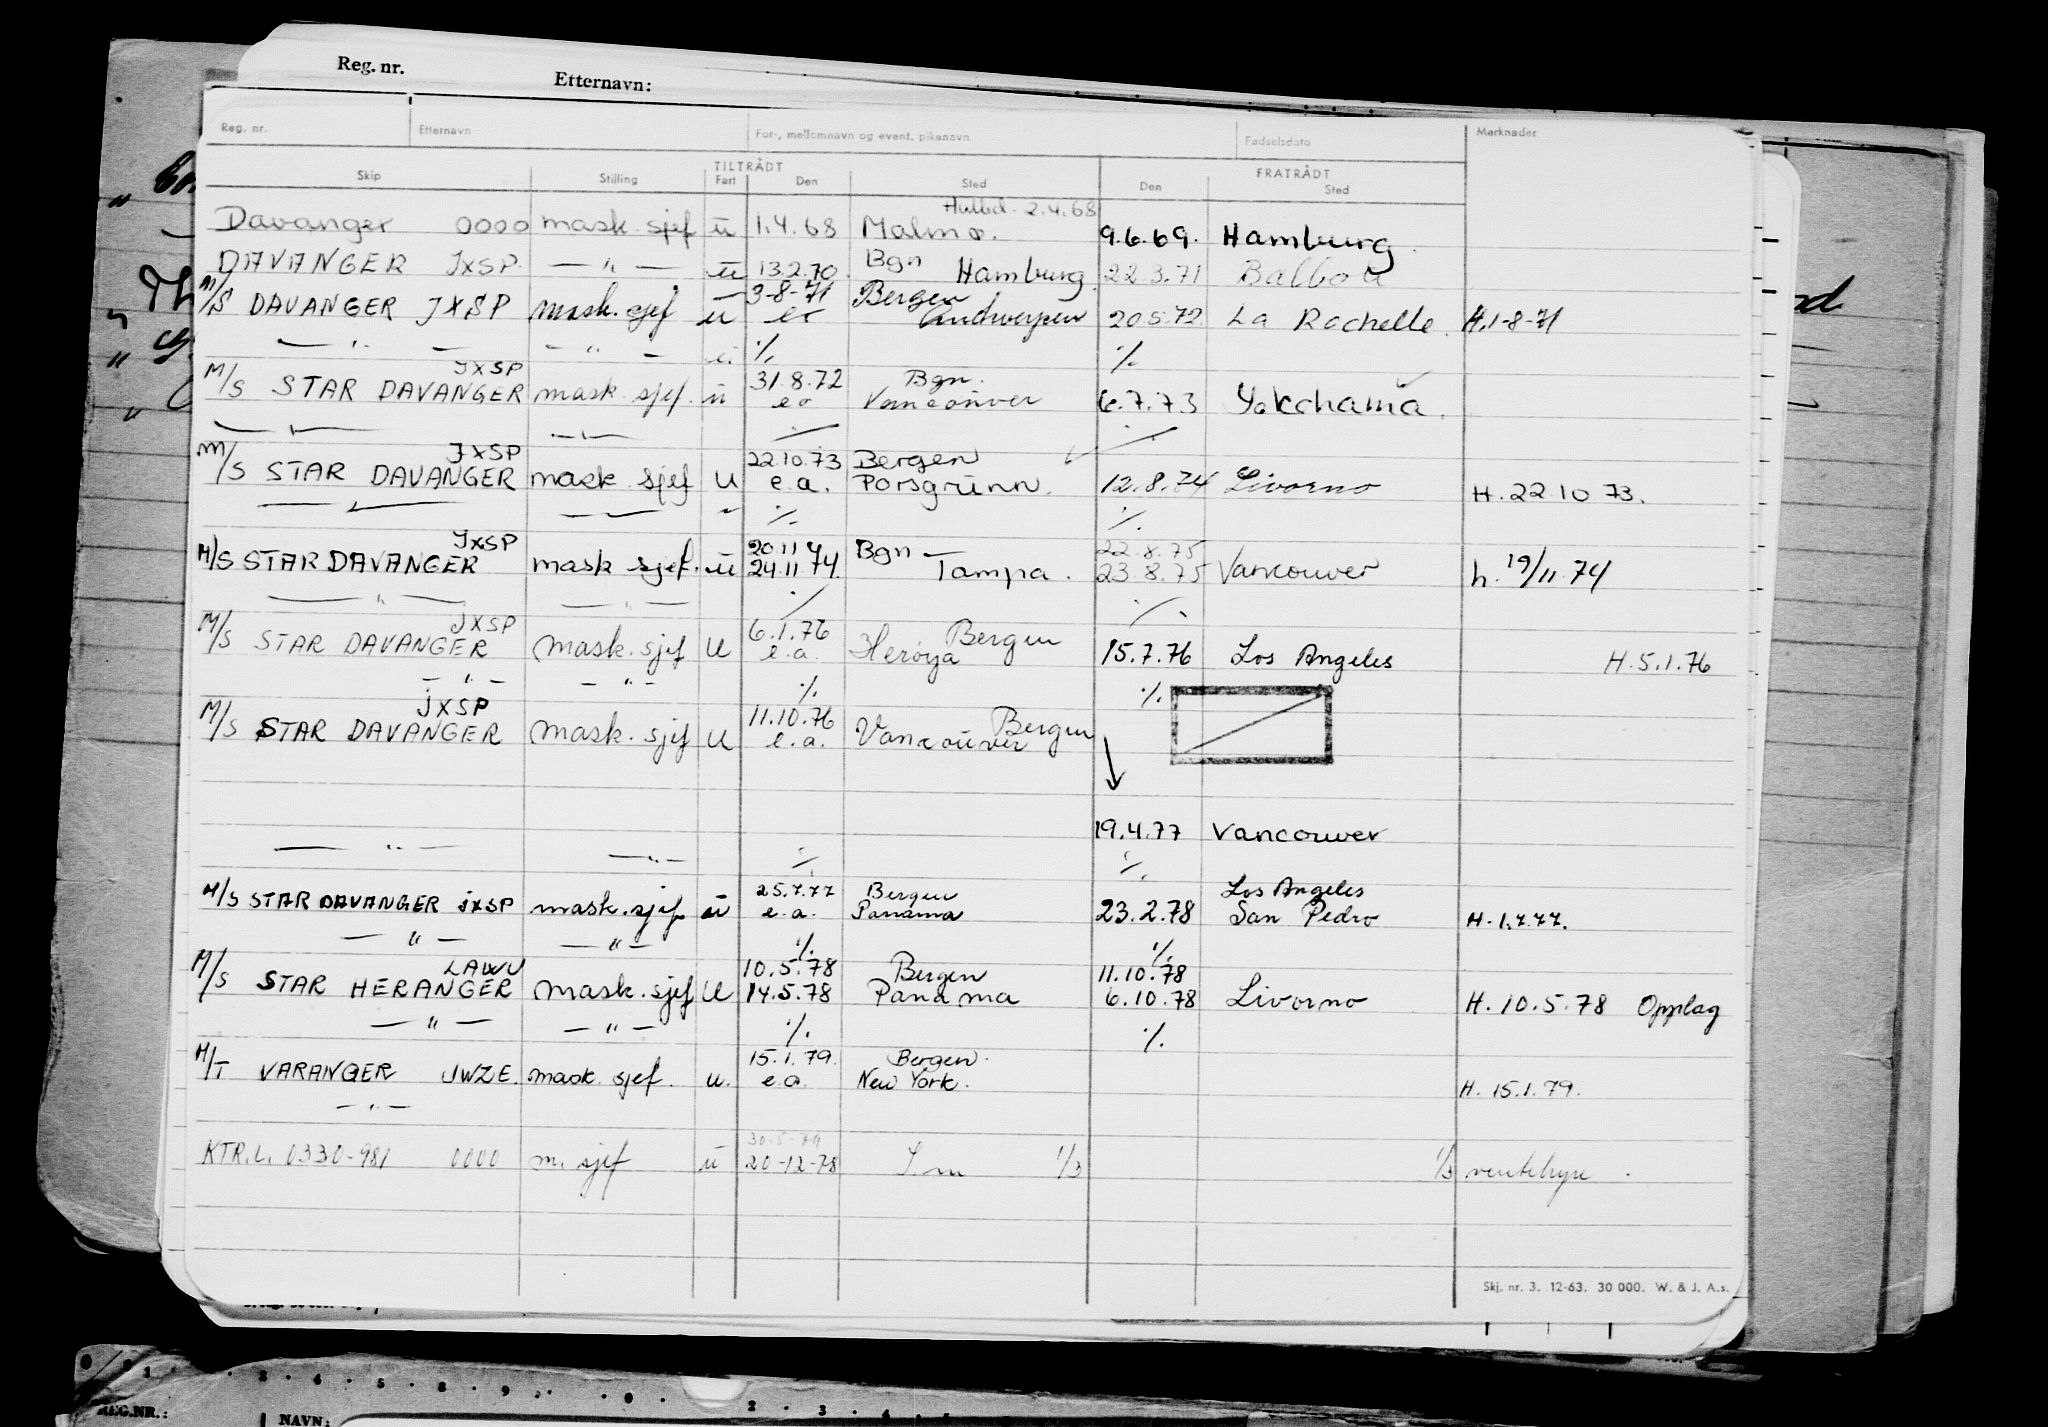 Reg. nr. Etternavn:
Reg. nr. Etternavn For-, mellomnavn og event. pikenavn Fødselsdato Merknader.
TILTRÅDT FRATRÅDT
Skip Stilling Fart Den Sted Den Sted
2.4.68
Davanger 0000 mask. sjef ü 1.4.68 Malmø. 9.6.69. Hamburg.
DAVANGER JXSP. — " — ü 13.2.70. Bgn Hamburg. 22.3.71 Balboa
3-8-71 Bergen
M/S DAVANGER JXSP mask. sjef ü Andwerpen 20.5.72. La Rochelle. H.1-8-71
— " — — " — ü % %
JXSP 31.8.72 Bgn.
M/S STAR DAVANGER mask. sjef. ü ea Vancouver 6.7.73 Yokohama.
— " — — " — % %
JXSP 22.10.73 Bergen
M/S STAR DAVANGER mask. sjef U e.a. Porsgrunn. 12.8.74 Livorno H. 22.10 73.
— " — — " — " % %
JXSP 20.11 4 Bgn — 22.8.75
M/S STAR DAVANGER mask sjef. ü 24.11.74. Tampa. 23.8.75 Vancouver h. 19/11.74
— " — — " — % %
JXSP 6.1.76 Bergen
M/S STAR DAVANGER mask. sjef U e.a. Herøya 15.7.76 Los Angeles H.5.1.76
— " — — " — % %
JXSP 11.10.76 Bergen
M/S STAR DAVANGER mask. sjef U e.a. Vancouver
19.4.77 Vancouver
— " — — " — % %
25.7.77 Bergen Los Angeles
M/S STAR DAVANGER JXSP mask. sjef ü e.a. Panama 23.2.78 San Pedro H. 1.7.77.
— " — — " — % %
LAWU 10.5.78 Bergen 11.10.78
M/S STAR HERANGER mask. sjef U 14.5.78 Panama 6.10.78 Livorno H. 10.5.78 Opplag
— " — — " — % %
15.1.79. Bergen.
M/T VARANGER JWZE. mask. sjef. u. e.a. New York. H. 15.1.79.
— " —
30.5-79
KTR.L. 0330-981 0000 m. sjef ü 20-12-78 1/3 1/3 ventehyre.
Skj. nr. 3. 12-63. 30 000. W. & J. A.s.
REG.NR.: NAVN: